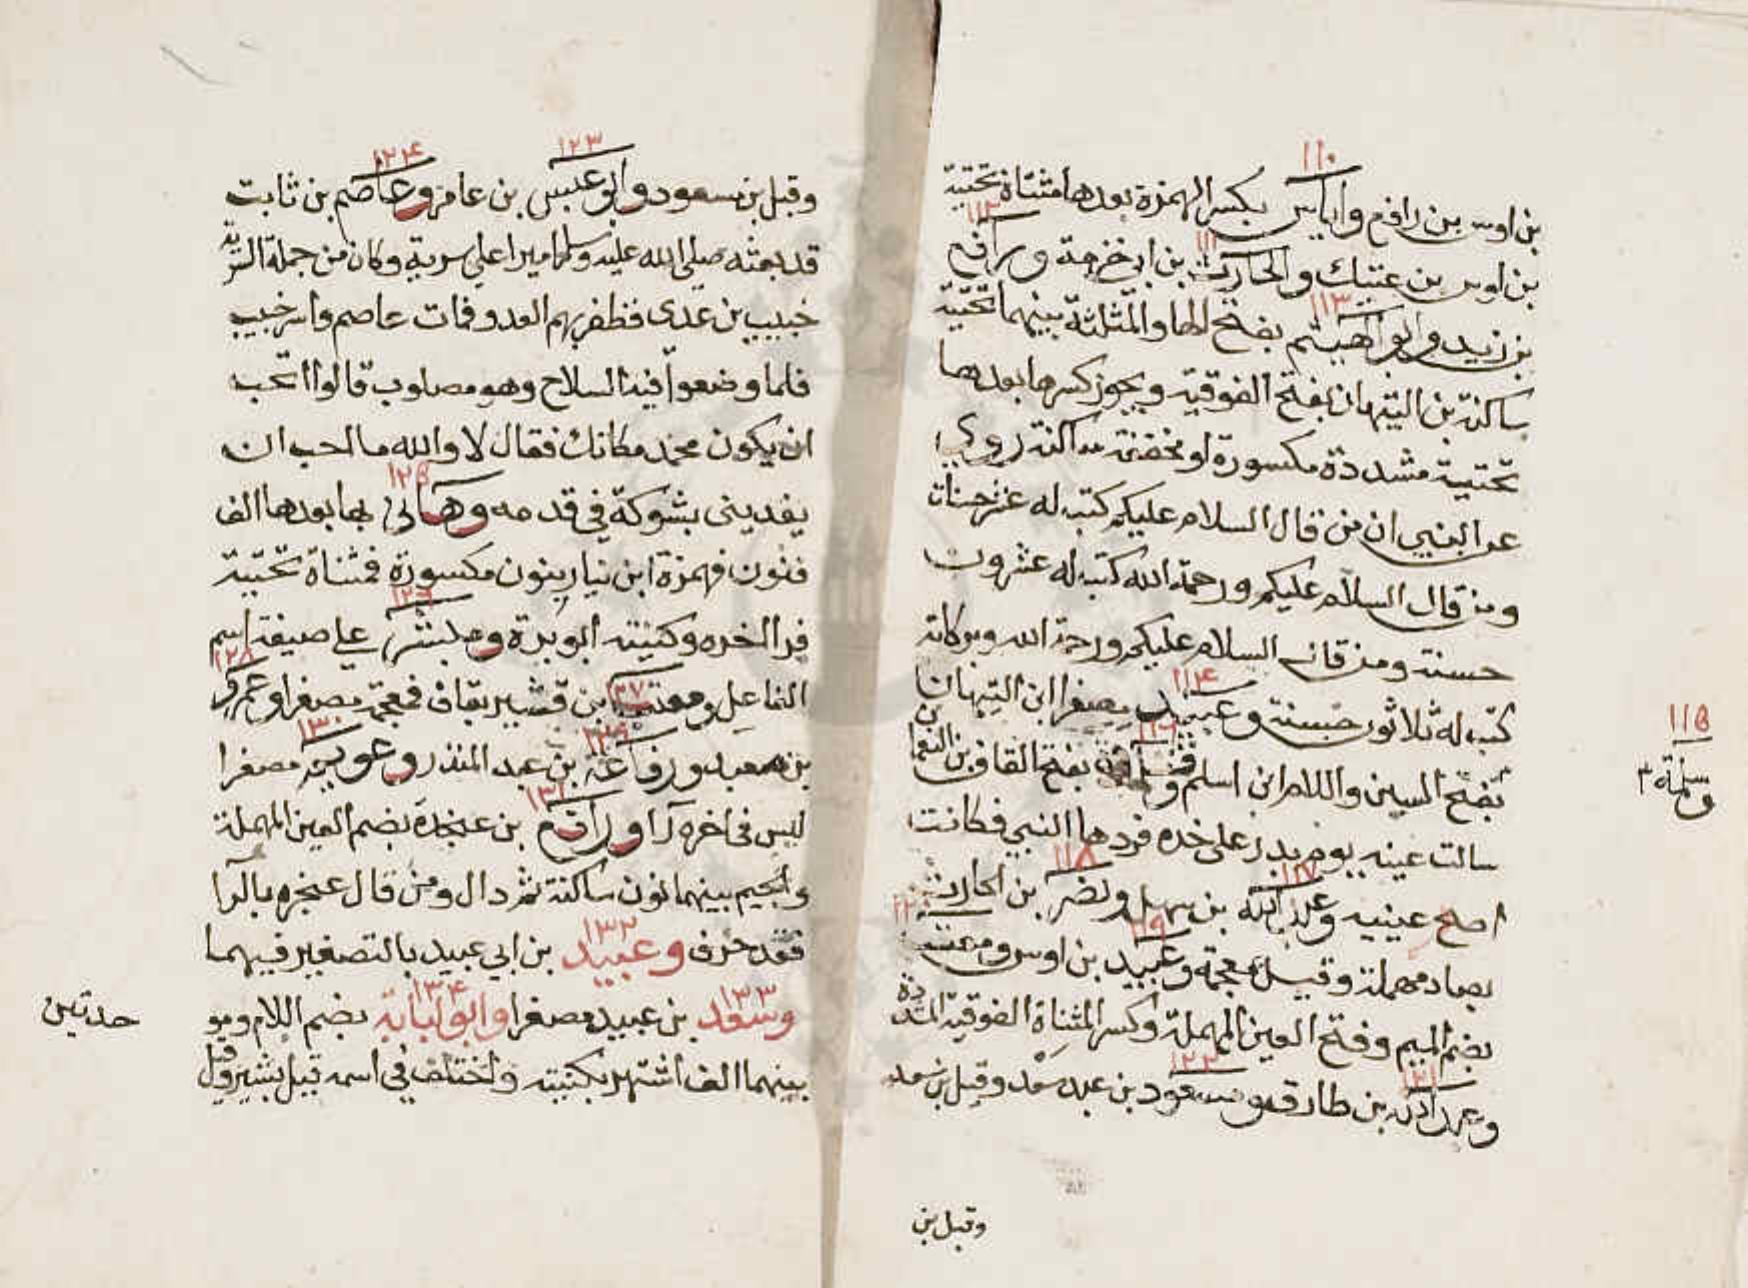 ١١٠
بن اوس بن رافع واياس بكسر الهمزة بعدها مثناة تحتية
١١١ ١١٢
بن اوس بن عتيك والحارث بن ابي خزمة ورافع
١١٣
بن زيد وابو الهيثم بفتح الها والمثلثة بينهما تحتية
ساكنة بن التيهان بفتح الفوقية ويجوز كسرها بعدها
تحتية مشددة مكسورة او مخففة ساكنة روي
عن النبي ان من قال السلام عليكم كتب له عشر حسنات
ومن قال السلام عليكم ورحمة الله كتب له عشرون
حسنة ومن قال السلام عليكم ورحمة الله وبركاته
١١٤
كتب له ثلاثون حسنة وعبيد مصغرا ابن التيهان
١١٥
وسلمة ٣
١١٦
بفتح السين واللام ابن اسلم وقتادة بفتح القاف بن النعمان
سالت عينه يوم بدر على خده فردها النبي فكانت
١١٧ ١١٨
اصلح عينيه وعبد الله بن سهل ونضر بن الحارث
١١٩ ١٢٠
بصاد مهملة وقيل معجمة وعبيد بن اوس ومعتب
بضم الميم وفتح العين المهملة وكسر المثناة الفوقية المشددة
١٢١ ١٢٢
وعبد الله بن طارق ومسعود بن عبد سعد وقيل بن سعد
وقيل بن
١٢٣ ١٢٤
وقيل بن مسعود وابو عبس بن عامر وعاصم بن ثابت
قد بعثه صلى الله عليه وسلم اميرا على سرية وكان من جملة السرية
خبيب بن عدى فظفر بهم العدو فمات عاصم واسر خبيب
فلما وضعوا فيه السلاح وهو مصلوب قالوا اتحب
ان يكون محمد مكانك فقال لا والله ما احب ان
١٢٥
يفديني بشوكة في قدمه وهاني بها بعدها الف
فنون فهمزة ابن نيار بنون مكسورة فمثناة تحتية
١٢٦
فرا اخره وكنيته ابو بردة وعلى صيغة اسم
١٢٧ ١٢٨
الفاعل ومعتب بن قشير بقاف فمعجمة مصغرا وعمرو
١٢٩ ١٣٠
بن معبد ورفاعة بن عبد المنذر وعويم مصغرا
١٣١
ليس في اخره را ورافع بن عنجدة بضم العين المهملة
والجيم بينهما نون ساكنة ثم دال ومن قال عنجره بالرا
١٣٢
فقد حرف وعبيد بن ابي عبيد بالتصغير فيهما
١٣٣ ١٣٤
وسعد بن عبيد مصغرا وابو لبابة بضم اللام وبمو
بينهما الف اشتهر بكنيته واختلف في اسمه قيل بشير وقيل